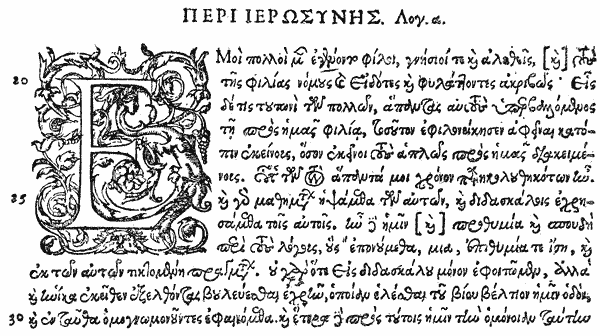 ΠΕΡΙ ΙΕΡΩΣΥΝΗΣ. Λογ. α.
ΕΜοὶ πολλοὶ μὲν ἐγένοντο φίλοι, γνήσιοί τε καὶ ἀληθεῖς, [καὶ] τοὺς
20 τῆς φιλίας νόμους καὶ εἰδότες καὶ φυλάττοντες ἀκριβῶς· Εἷς
δέ τις τουτωνὶ τῶν πολλῶν, ἅπαντας αὐτοὺς ὑπερβαλλόμενος
τῇ πρὸς ἡμᾶς φιλίᾳ, τοσοῦτον ἐφιλονείκησεν ἀφεῖναι κατό-
πιν ἐκείνους, ὅσον ἐκεῖνοι τοὺς ἁπλῶς πρὸς ἡμᾶς διακειμέ-
νους. οὗτος τῶν τὸν ἅπαντά μοι χρόνον παρηκολουθηκότων ἦν.
25 καὶ γὰρ μαθημάτων ἡψάμεθα τῶν αὐτῶν, καὶ διδασκάλοις ἐχρη-
σάμεθα τοῖς αὐτοῖς. ἦν δὲ ἡμῖν [καὶ] προθυμία καὶ σπουδὴ
περὶ τοὺς λόγους, οὓς ἐπονούμεθα, μία, ἐπιθυμία τε ἴση, καὶ
ἐκ τῶν αὐτῶν τικτομένη πραγμάτων. οὐ γὰρ ὅτε εἰς διδασκάλου μόνον ἐφοιτῶμεν, ἀλλὰ
καὶ ἡνίκα ἐκεῖθεν ἐξελθόντας βουλεύεσθαι ἐχρῆν, ὁποίαν ἑλέσθαι τοῦ βίου βέλτιον ἡμῖν ὁδὸν,
30 καὶ ἐνταῦθα ὁμογνωμονοῦντες ἐφαινόμεθα. καὶ ἕτερα δὲ πρὸς τούτοις ἡμῖν τὴν ὁμόνοιαν ταύτην